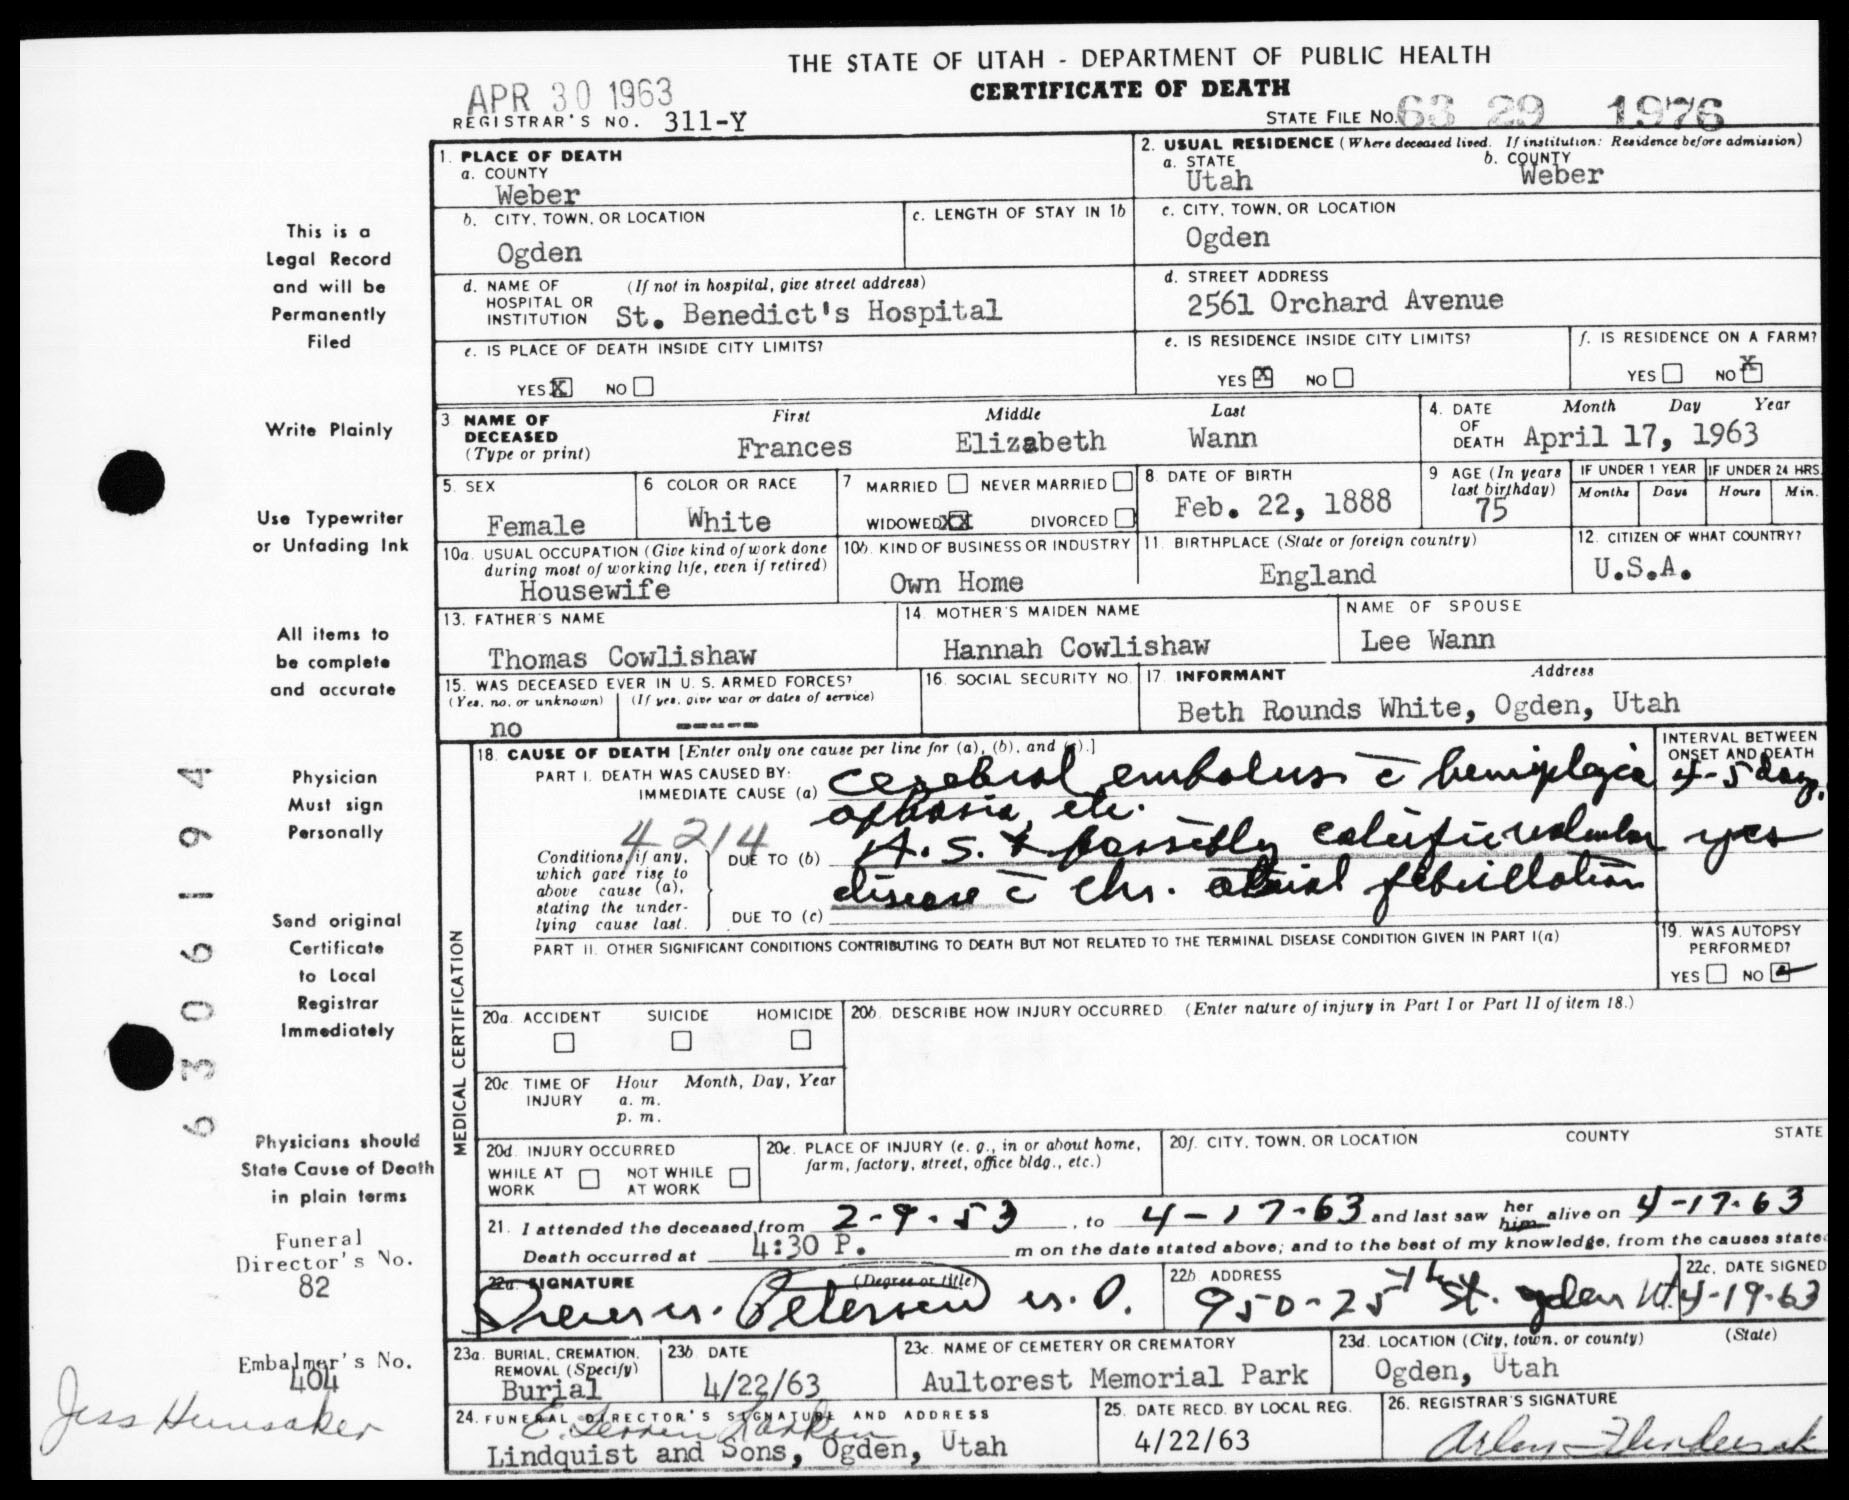 THE STATE OF UTAH - DEPARTMENT OF PUBLIC HEALTH
CERTIFICATE OF DEATH
APR 30 1963
REGISTRAR'S NO. 311-Y
STATE FILE NO. 63 29 1976
1. PLACE OF DEATH
a. COUNTY
Weber
2. USUAL RESIDENCE (Where deceased lived. If institution: Residence before admission)
a. STATE
Utah
b. COUNTY
Weber
b. CITY, TOWN, OR LOCATION
Ogden
c. LENGTH OF STAY IN 1b
c. CITY, TOWN, OR LOCATION
Ogden
d. NAME OF HOSPITAL OR INSTITUTION
(If not in hospital, give street address)
St. Benedict's Hospital
d. STREET ADDRESS
2561 Orchard Avenue
e. IS PLACE OF DEATH INSIDE CITY LIMITS?
YES X NO
e. IS RESIDENCE INSIDE CITY LIMITS?
YES X NO
f. IS RESIDENCE ON A FARM?
YES NO X
3 NAME OF DECEASED
(Type or print)
First Middle Last
Frances Elizabeth Wann
4. DATE OF DEATH
Month Day Year
April 17, 1963
5. SEX
Female
6 COLOR OR RACE
White
7 MARRIED NEVER MARRIED
WIDOWED XX DIVORCED
8. DATE OF BIRTH
Feb. 22, 1888
9 AGE (In years last birthday)
75
IF UNDER 1 YEAR
Months Days
IF UNDER 24 HRS.
Hours Min.
10a. USUAL OCCUPATION (Give kind of work done during most of working life, even if retired)
Housewife
10b. KIND OF BUSINESS OR INDUSTRY
Own Home
11. BIRTHPLACE (State or foreign country)
England
12. CITIZEN OF WHAT COUNTRY?
U.S.A.
13. FATHER'S NAME
Thomas Cowlishaw
14. MOTHER'S MAIDEN NAME
Hannah Cowlishaw
NAME OF SPOUSE
Lee Wann
15. WAS DECEASED EVER IN U.S. ARMED FORCES?
(Yes, no, or unknown) (If yes, give war or dates of service)
no ----
16. SOCIAL SECURITY NO.
17. INFORMANT Address
Beth Rounds White, Ogden, Utah
MEDICAL CERTIFICATION
18. CAUSE OF DEATH [Enter only one cause per line for (a), (b), and (c).]
PART I. DEATH WAS CAUSED BY:
IMMEDIATE CAUSE (a) cerebral embolus c̄ hemiplegia
aphasia, etc.
INTERVAL BETWEEN ONSET AND DEATH
4-5 days.
4214
Conditions, if any, which gave rise to above cause (a), stating the underlying cause last.
DUE TO (b) A.S. & possibly calcific valvular yes
disease c̄ chr. atrial fibrillation
DUE TO (c)
PART II. OTHER SIGNIFICANT CONDITIONS CONTRIBUTING TO DEATH BUT NOT RELATED TO THE TERMINAL DISEASE CONDITION GIVEN IN PART I(a)
19. WAS AUTOPSY PERFORMED?
YES NO
20a. ACCIDENT SUICIDE HOMICIDE
20b. DESCRIBE HOW INJURY OCCURRED. (Enter nature of injury in Part I or Part II of item 18.)
20c TIME OF INJURY
Hour Month, Day, Year
a. m.
p. m.
20d. INJURY OCCURRED
WHILE AT WORK NOT WHILE AT WORK
20e. PLACE OF INJURY (e. g., in or about home, farm, factory, street, office bldg., etc.)
20f. CITY, TOWN, OR LOCATION COUNTY STATE
21. I attended the deceased from 2-9-53, to 4-17-63 and last saw her him alive on 4-17-63
Death occurred at 4:30 P. m on the date stated above; and to the best of my knowledge, from the causes state
22a SIGNATURE (Degree or title)
Petersen M.D.
22b. ADDRESS
950-25th St. Ogden Ut.
22c. DATE SIGNED
4-19-63
23a. BURIAL, CREMATION, REMOVAL (Specify)
Burial
23b DATE
4/22/63
23c. NAME OF CEMETERY OR CREMATORY
Aultorest Memorial Park
23d. LOCATION (City, town, or county) (State)
Ogden, Utah
24. FUNERAL DIRECTOR'S SIGNATURE AND ADDRESS
Larkin
Lindquist and Sons, Ogden, Utah
25. DATE RECD. BY LOCAL REG.
4/22/63
26. REGISTRAR'S SIGNATURE
This is a
Legal Record
and will be
Permanently
Filed
Write Plainly
Use Typewriter
or Unfading Ink
All items to
be complete
and accurate
Physician
Must sign
Personally
Send original
Certificate
to Local
Registrar
Immediately
Physicians should
State Cause of Death
in plain terms
Funeral
Director's No.
82
Embalmer's No.
404
Jess Hunsaker
6306194